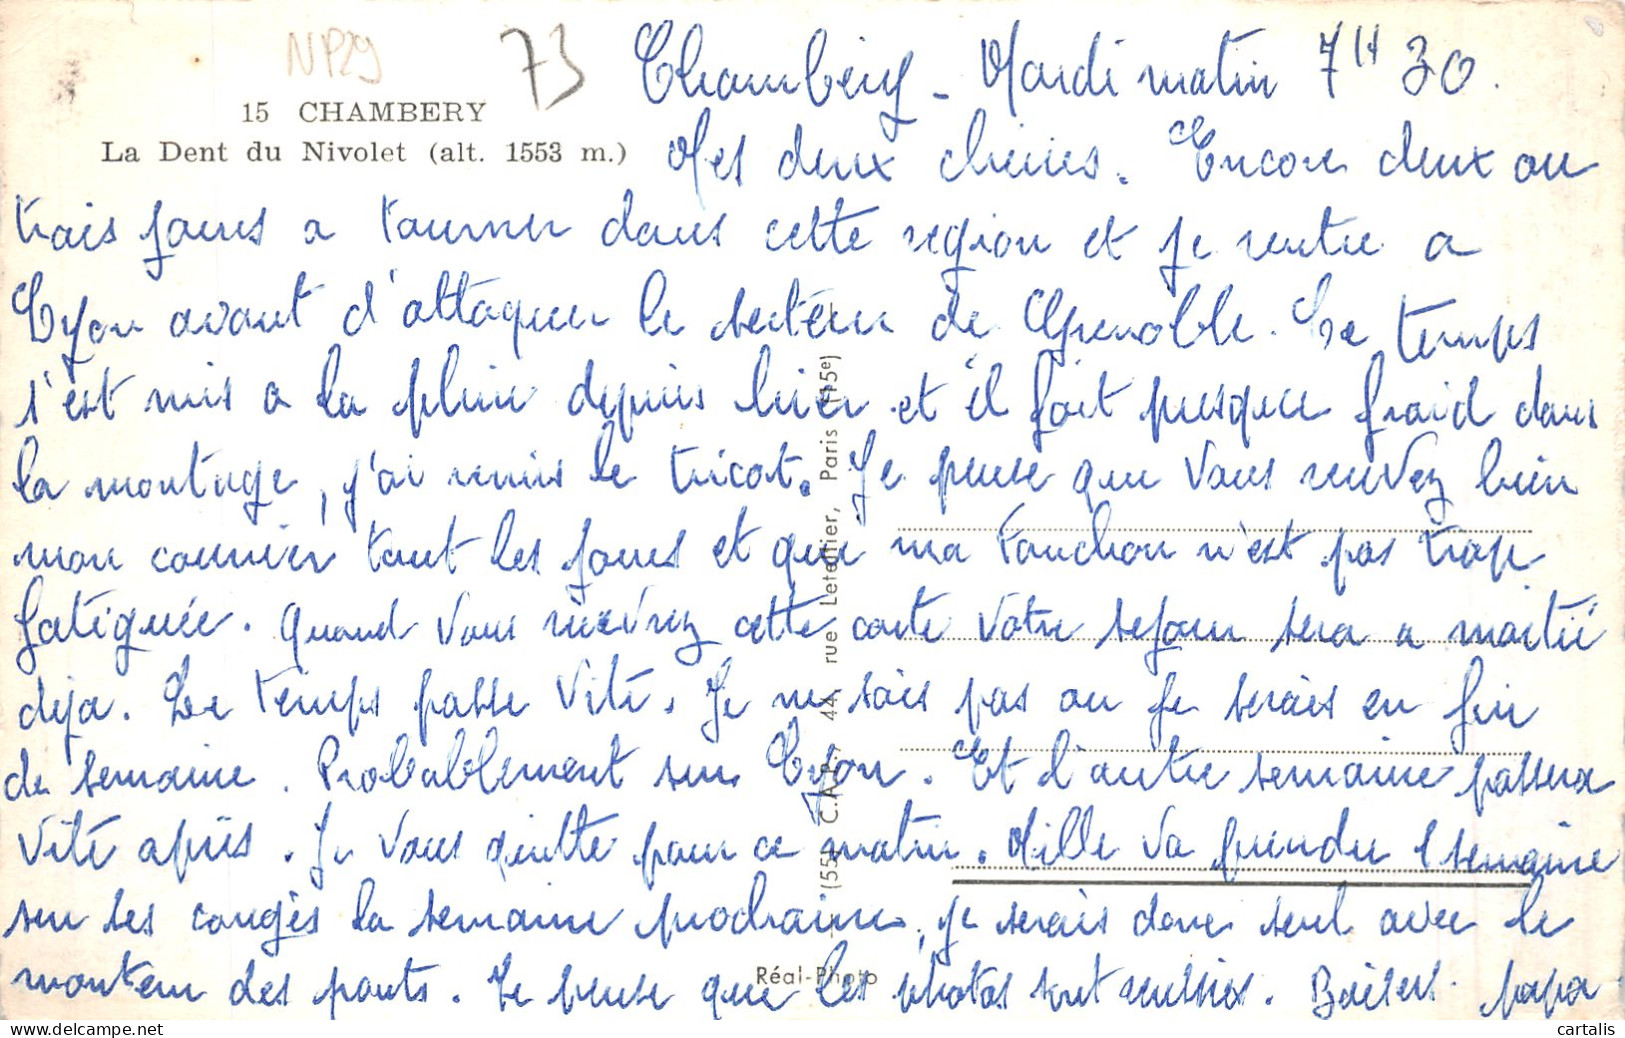 NP29
73
15 CHAMBERY
La Dent du Nivolet (alt. 1553 m.)
Chambéry - Mardi matin 7H30.
Mes deux chéries. Encore deux ou
trois jours a tourner dans cette region et je rentre a
Lyon avant d'attaquer le secteur de Grenoble. Le temps
s'est mis a la pluie depuis hier et il fait presque froid dans
la montagne, j'ai remis le tricot. Je pense que vous recevez bien
mon courrier tout les jours et que ma Fanchon n'est pas trop
fatiguée. Quand vous recevrez cette carte votre sejour sera a moitié
deja. Le temps passe vite. Je ne sais pas ou je serais en fin
de semaine. Probablement sur Lyon. Et l'autre semaine passera
vite après. Je vous quitte pour ce matin. Mille va prendre 1 semaine
sur ses congès la semaine prochaine, je serais donc seul avec le
monteur des ponts. Je pense que les photos sont reussies. Baisers. papa
(55) C.A.P. 44, rue Letellier, Paris (15e)
Réal-Photo
cartalis